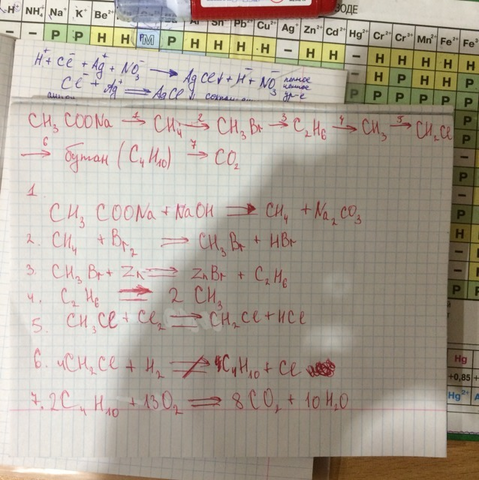 H⁺ NH₄⁺ Na⁺ K⁺ Be²⁺ Ni²⁺ Sn²⁺ Pb²⁺ Cu²⁺ Ag⁺ Zn²⁺ Cd²⁺ Hg²⁺ Cr²⁺ Cr³⁺ Mn²⁺ Fe²⁺
ВОДЕ
H⁺ + Cl⁻ + Ag⁺ + NO₃⁻ → AgCl↓ + H⁺ + NO₃⁻ полное
Cl⁻ + Ag⁺ ⇒ AgCl
CH₃COONa →¹ CH₄ →² CH₃Br →³ C₂H₆ →⁴ CH₃ →⁵ CH₂Cl
→⁶ бутан (C₄H₁₀) →⁷ CO₂
1.
CH₃COONa + NaOH ⇒ CH₄ + Na₂CO₃
2. CH₄ + Br₂ ⇒ CH₃Br + HBr
3. CH₃Br + Zn ⇒ ZnBr + C₂H₆
4. C₂H₆ ⇒ 2 CH₃
5. CH₃Cl + Cl₂ ⇒ CH₂Cl + HCl
6. 4CH₂Cl + H₂ ⇒ C₄H₁₀ + Cl
7. 2C₄H₁₀ + 13O₂ ⇒ 8CO₂ + 10H₂O
Hg
+0,85
Hg²⁺